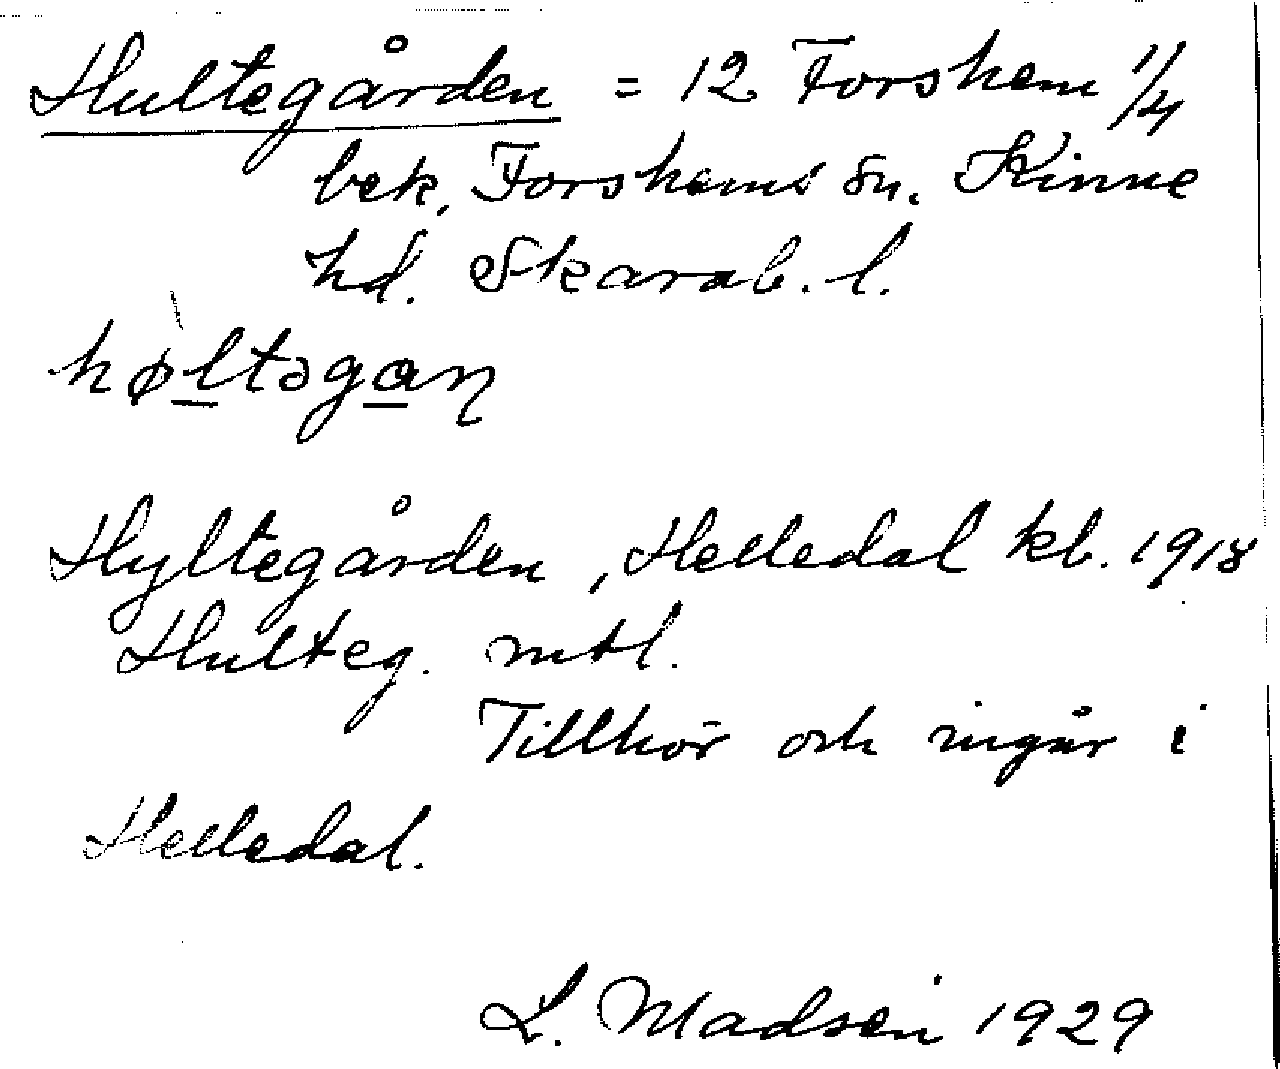 Hultegården = 12 Forshem 1/4
bek, Forshems sn. Kinne
hd. Skarab. l.
høltəgaɳ
Hyltegården, Helledal kb. 1918
Hulteg. mtl.
Tillhör och ingår i
Helledal.
L. Madsén 1929